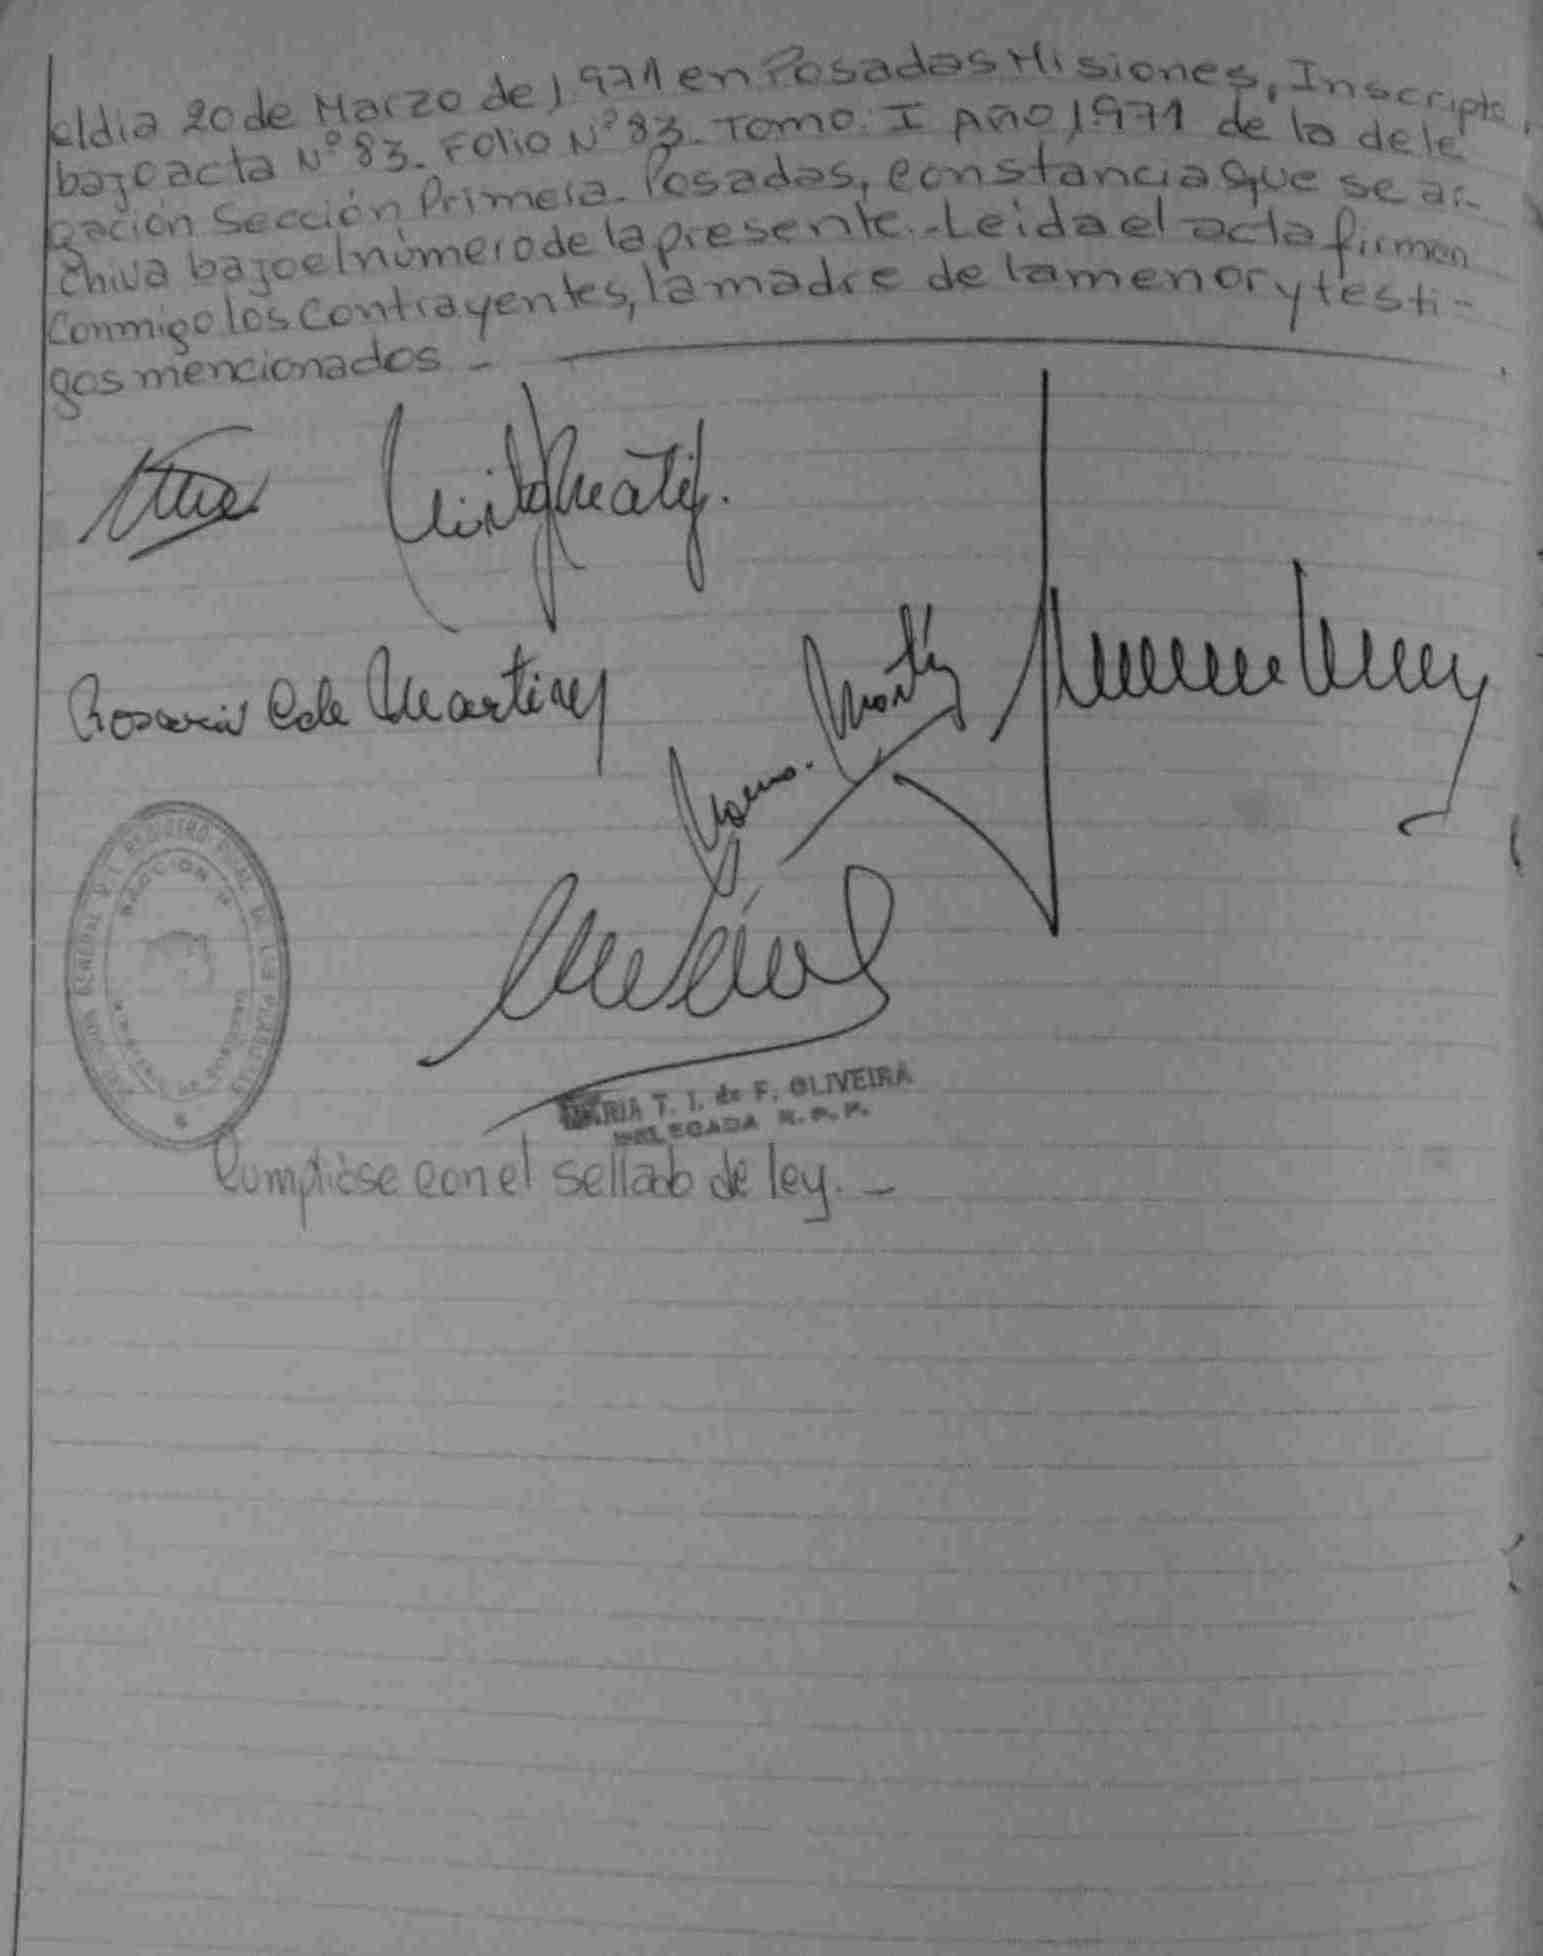 el dia 20 de Marzo de 1.971 en Posadas Misiones, Inscripto,
bajo acta Nº 83. Folio Nº 83. Tomo. I Año 1.971 de la dele
gación Sección Primera. Posadas, constancia que se ar-
chiva bajo el número de la presente.-Leida el acta firman
conmigo los contrayentes, la madre de la menor y testi-
gos mencionados -
Rosario C de Martinez
MARIA T. I. de F. OLIVEIRA
DELEGADA R. P. P.
Cumplióse con el sellado de ley. -